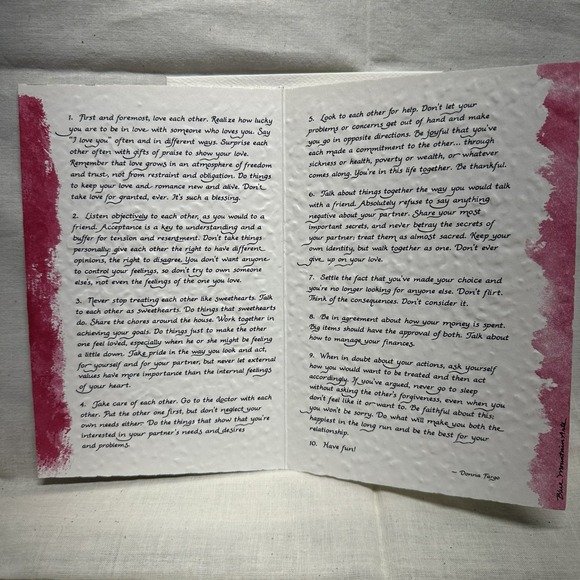 1. First and foremost, love each other. Realize how lucky
you are to be in love with someone who loves you. Say
"I love you" often and in different ways. Surprise each
other often with gifts of praise to show your love.
Remember that love grows in an atmosphere of freedom
and trust, not from restraint and obligation. Do things
to keep your love and romance new and alive. Don't
take love for granted, ever. It's such a blessing.
2. Listen objectively to each other, as you would to a
friend. Acceptance is a key to understanding and a
buffer for tension and resentment. Don't take things
personally; give each other the right to have different
opinions, the right to disagree. You don't want anyone
to control your feelings, so don't try to own someone
elses, not even the feelings of the one you love.
3. Never stop treating each other like sweethearts. Talk
to each other as sweethearts. Do things that sweethearts
do. Share the chores around the house. Work together in
achieving your goals. Do things just to make the other
one feel loved, especially when he or she might be feeling
a little down. Take pride in the way you look and act,
for yourself and for your partner, but never let external
values have more importance than the internal feelings
of your heart.
4. Take care of each other. Go to the doctor with each
other. Put the other one first, but don't neglect your
own needs either. Do the things that show that you're
interested in your partner's needs and desires
and problems.
5. Look to each other for help. Don't let your
problems or concerns get out of hand and make
you go in opposite directions. Be joyful that you've
each made a commitment to the other... through
sickness or health, poverty or wealth, or whatever
comes along. You're in this life together. Be thankful.
6. Talk about things together the way you would talk
with a friend. Absolutely refuse to say anything
negative about your partner. Share your most
important secrets, and never betray the secrets of
your partner; treat them as almost sacred. Keep your
own identity, but walk together as one. Don't ever
give up on your love.
7. Settle the fact that you've made your choice and
you're no longer looking for anyone else. Don't flirt.
Think of the consequences. Don't consider it.
8. Be in agreement about how your money is spent.
Big items should have the approval of both. Talk about
how to manage your finances.
9. When in doubt about your actions, ask yourself
how you would want to be treated and then act
accordingly. If you've argued, never go to sleep
without asking the other's forgiveness, even when you
don't feel like it or want to. Be faithful about this;
you won't be sorry. Do what will make you both the
happiest in the long run and be the best for your
relationship.
10. Have fun!
— Donna Fargo
Blue Mountain Arts